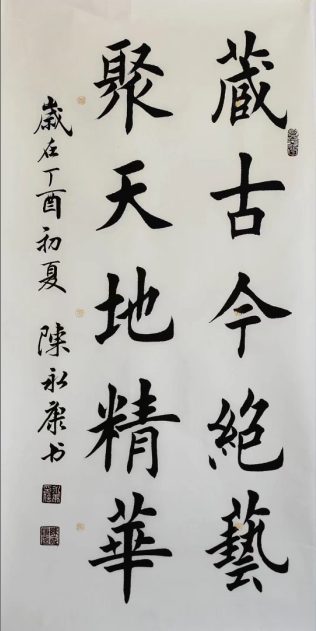 藏古今絕藝
聚天地精華
歲在丁酉初夏 陳永康书